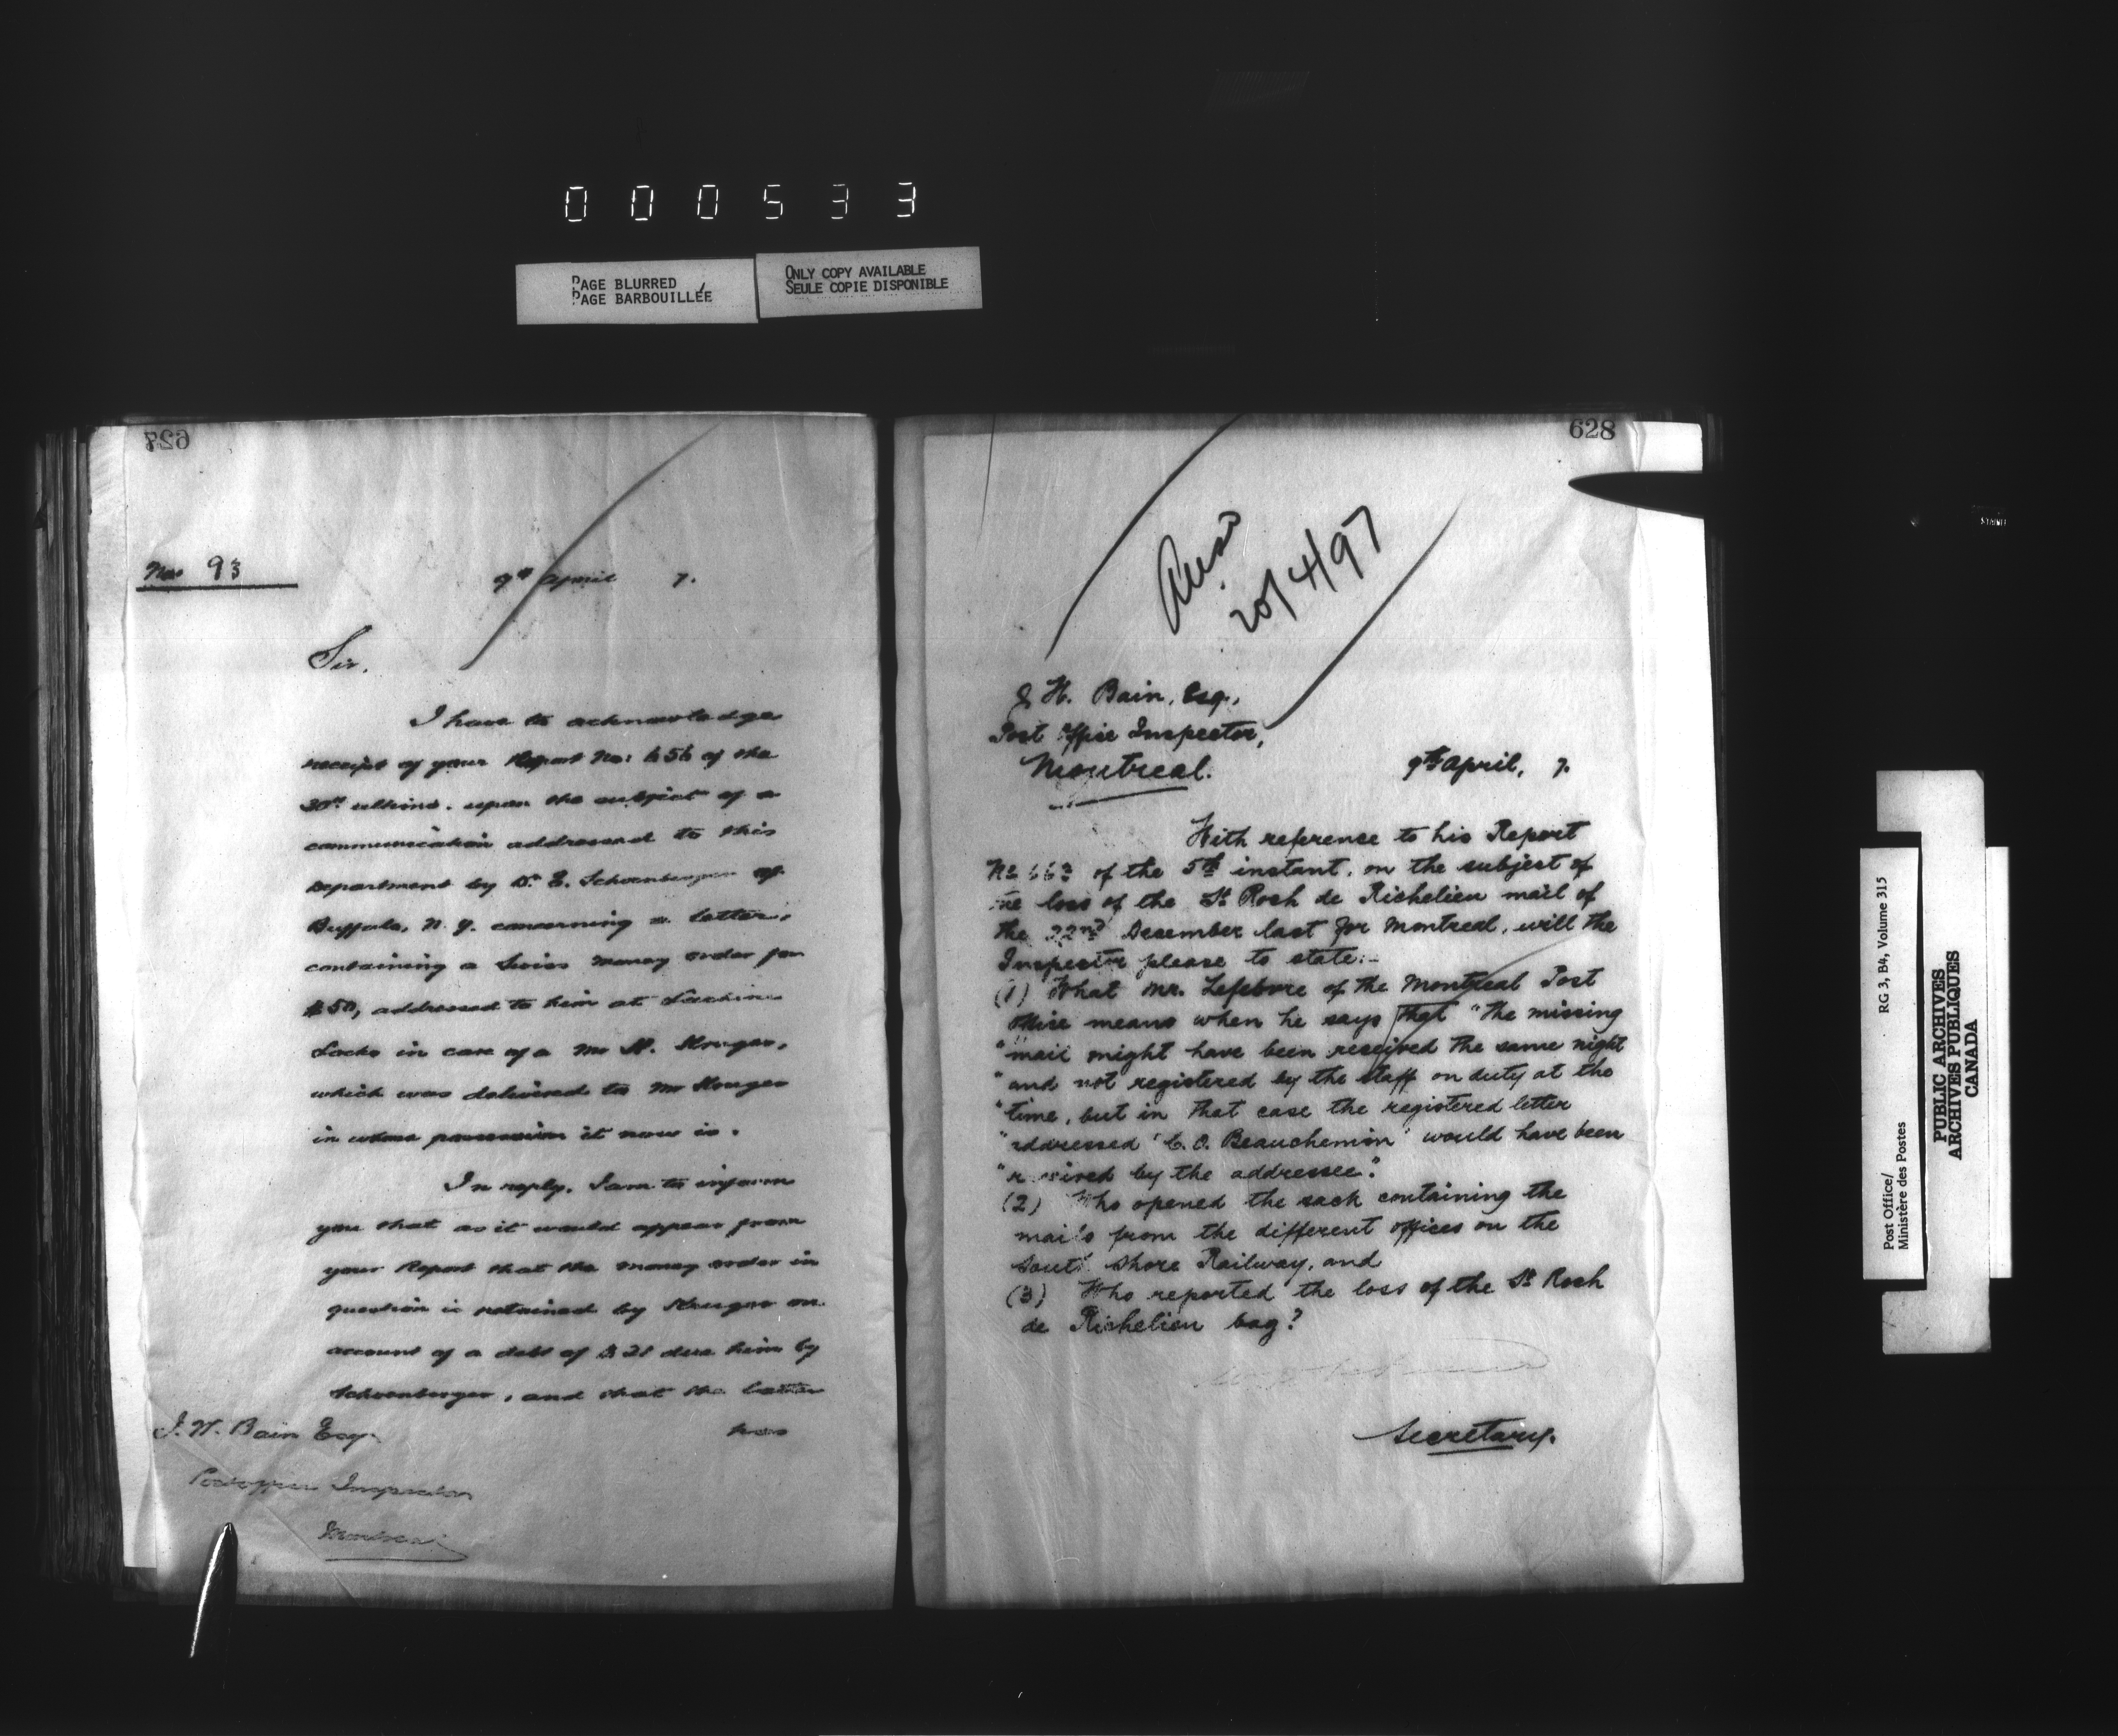 000533
PAGE BLURRED
PAGE BARBOUILLÉE
ONLY COPY AVAILABLE
SEULE COPIE DISPONIBLE
627
No 93
9th April 7.
Sir.
I have to acknowledge
receipt of your Report No: 656 of the
30th ultimo. upon the subject of a
communication addressed to this
Department by Dr. E. Schoenberger of
Buffalo, N. Y. concerning a letter,
containing a Swiss money order for
$50, addressed to him at Lachine
Locks in care of a Mr H. Kruger,
which was delivered to Mr Kruger
in whose possession it now is.
In reply, I am to inform
you that as it would appear from
your Report that the money order in
question is retained by Kruger on
account of a debt of $21 due him by
Schoenberger, and that the latter
has
J. H. Bain Esq
Post office Inspector
Montreal
628
Ansd
20/4/97
J H. Bain, Esq.,
Post Office Inspector,
Montreal.
9th April, 7.
With reference to his Report
No 663 of the 5th instant, on the subject of
the loss of the St Roch de Richelieu mail of
the 22nd December last for Montreal, will the
Inspector please to state:-
(1) What Mr. Lefebvre of the Montreal Post
Office means when he says that "the missing
"mail might have been received the same night
"and not registered by the staff on duty at the
"time, but in that case the registered letter
"addressed 'C. O. Beauchemin' would have been
"received by the addressee".
(2) Who opened the sack containing the
mails from the different offices on the
South Shore Railway, and
(3) Who reported the loss of the St Roch
de Richelieu bag?
Secretary.
Post Office/
Ministère des Postes
RG 3, B4, Volume 315
PUBLIC ARCHIVES
ARCHIVES PUBLIQUES
CANADA